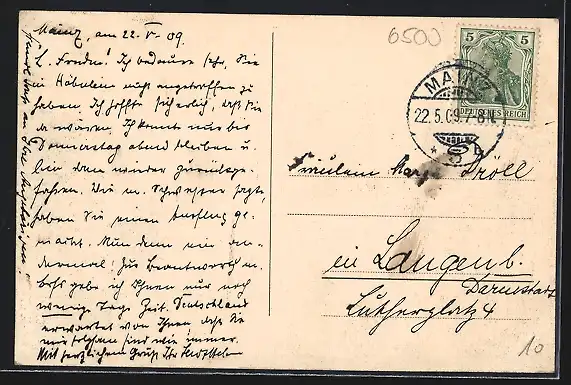 Mainz, am 22. V. 09.
L. Freden! Ich bedaure sehr, Sie
in nicht angetroffen zu
haben. Ich hoffte sicherlich, daß Sie
da wären. Ich konnte nur bis
Donnerstag abend bleiben u.
bin dann wieder zurückge-
fahren. Wie m. Schwester sagte,
haben Sie einen Ausflug ge-
macht. Nun denn ein an-
dermal! Zur Beantwortg m.
gebe ich Ihnen nur noch
wenige Tage Zeit. Deutschland
erwartet von Ihnen, daß Sie
sind wie immer.
Mit herzlichem Gruß Ihr
an Ihre
6500
5 5
DEUTSCHES REICH
MAINZ
22.5.09.7-8N
Fräulein Dröll
in Langen b.
Darmstadt
Lutherplatz 4
10